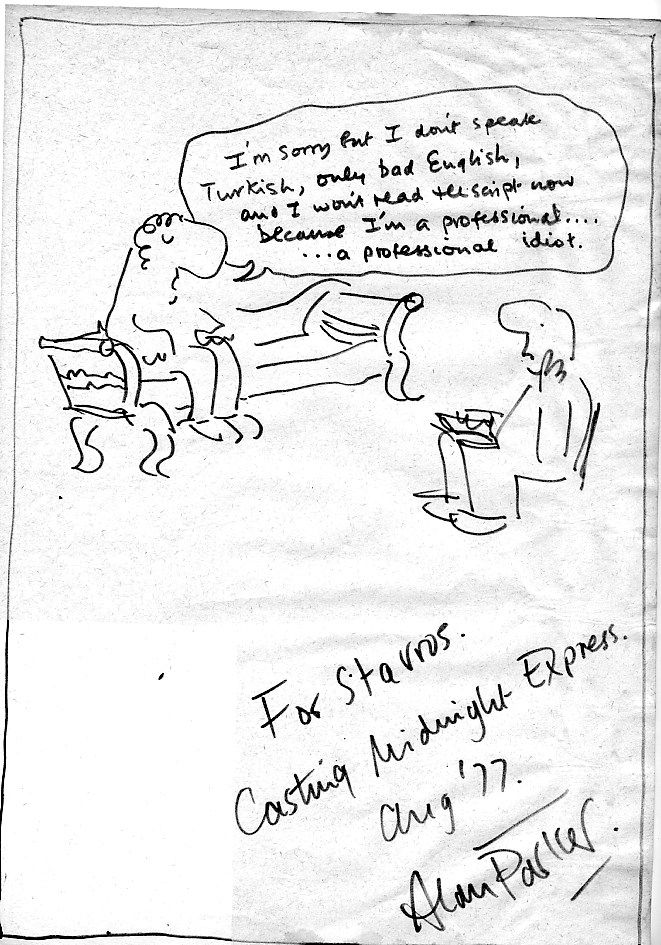 I'm sorry but I don't speak
Turkish, only bad English,
and I won't read the script now
because I'm a professional....
...a professional idiot.
For Stavros.
Casting Midnight Express.
Aug '77.
Alan Parker.